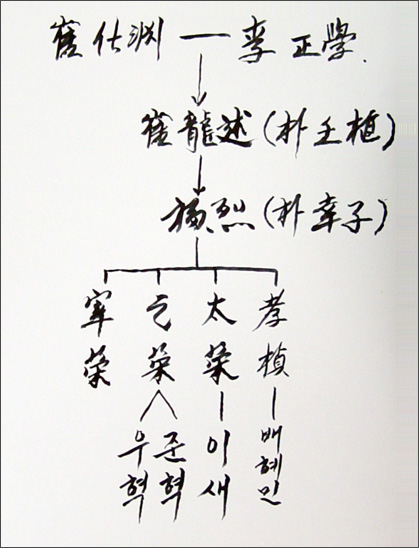 崔仕渊 — 李正學.
崔龍述(朴壬植)
烈(朴幸子)
榮
榮
太榮
孝楨
우혁
준혁
이새
배혜민